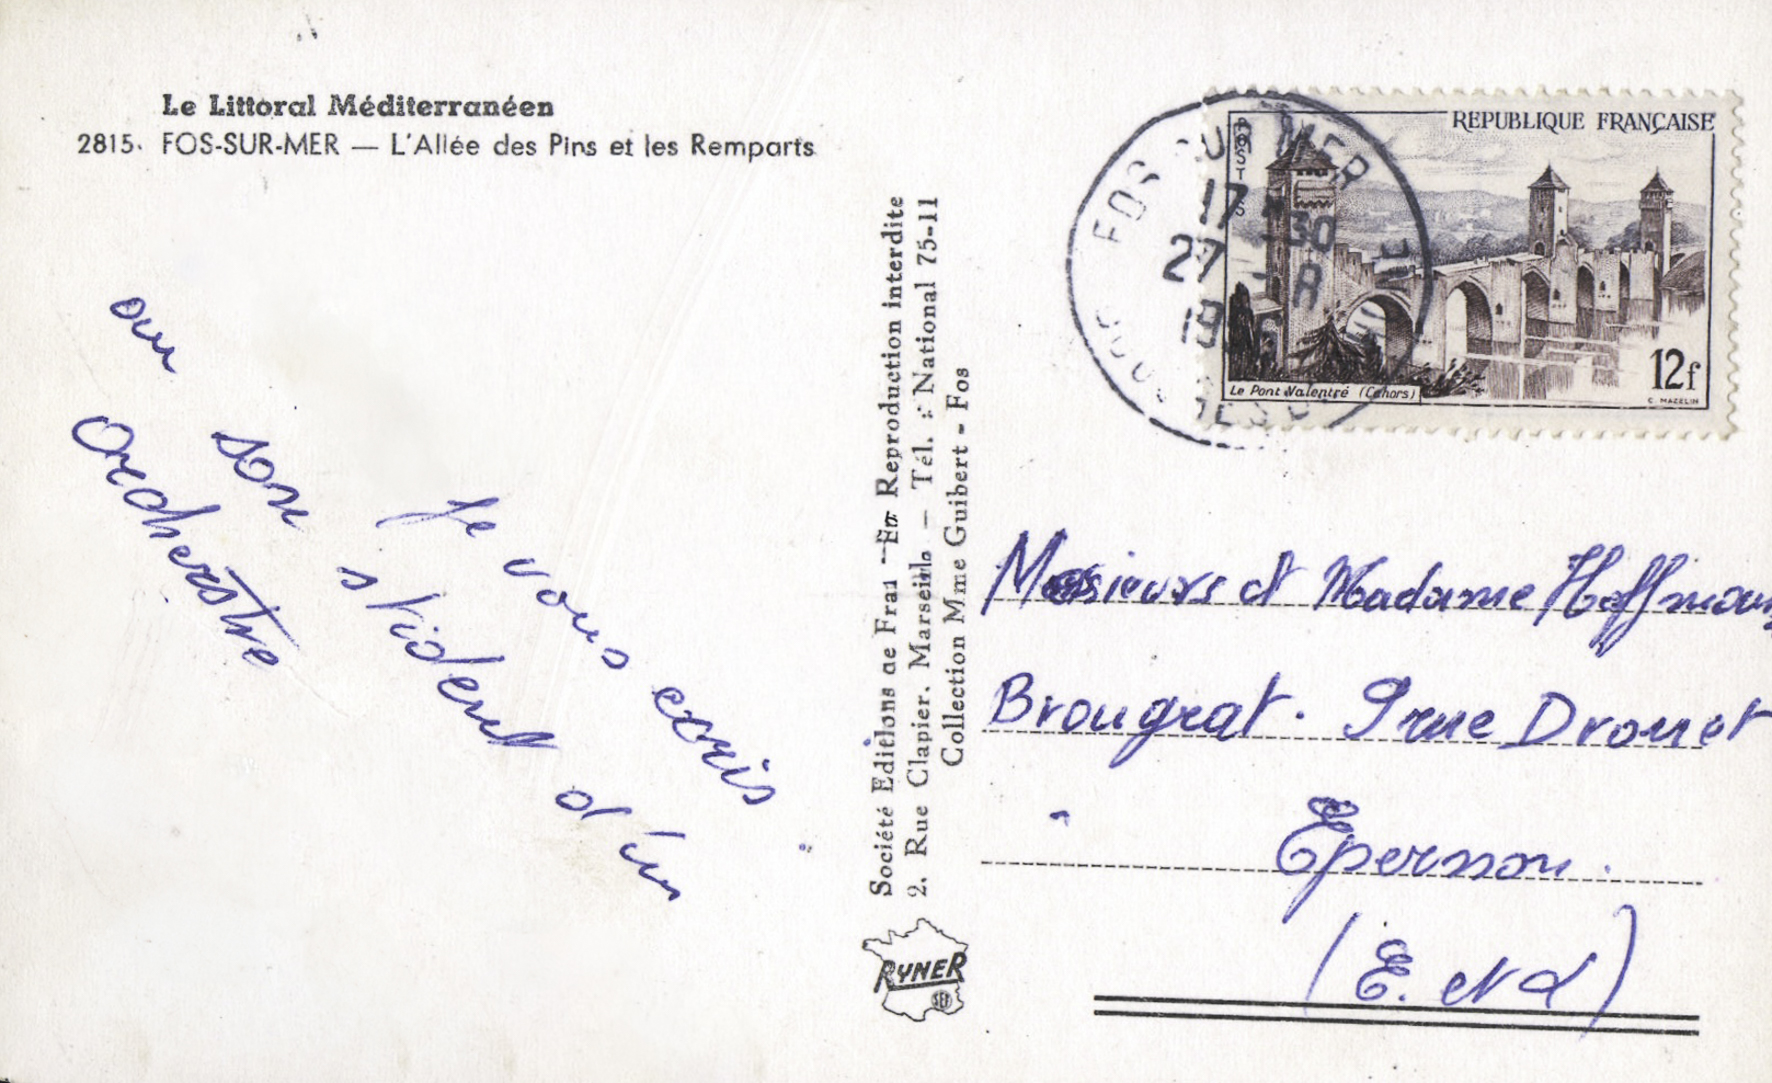 Le Littoral Méditerranéen
2815. FOS-SUR-MER — L'Allée des Pins et les Remparts
Je vous ecris
au son strident d'un
Orcherstre
Société Editions de Fran — En Reproduction interdite
2. Rue Clapier. Marseille — Tél. : National 75-11
Collection Mme Guibert - Fos
RYNER
SEF
FOS SUR MER
17 30
27 - 8
BOUCHES DU
REPUBLIQUE FRANÇAISE
POSTES
12f
Le Pont Valentré (Cahors)
C. MAZELIN
Messieurs et Madame Hoffmann
Brougrat. 9 rue Drouet
Epernon.
(E. et L)